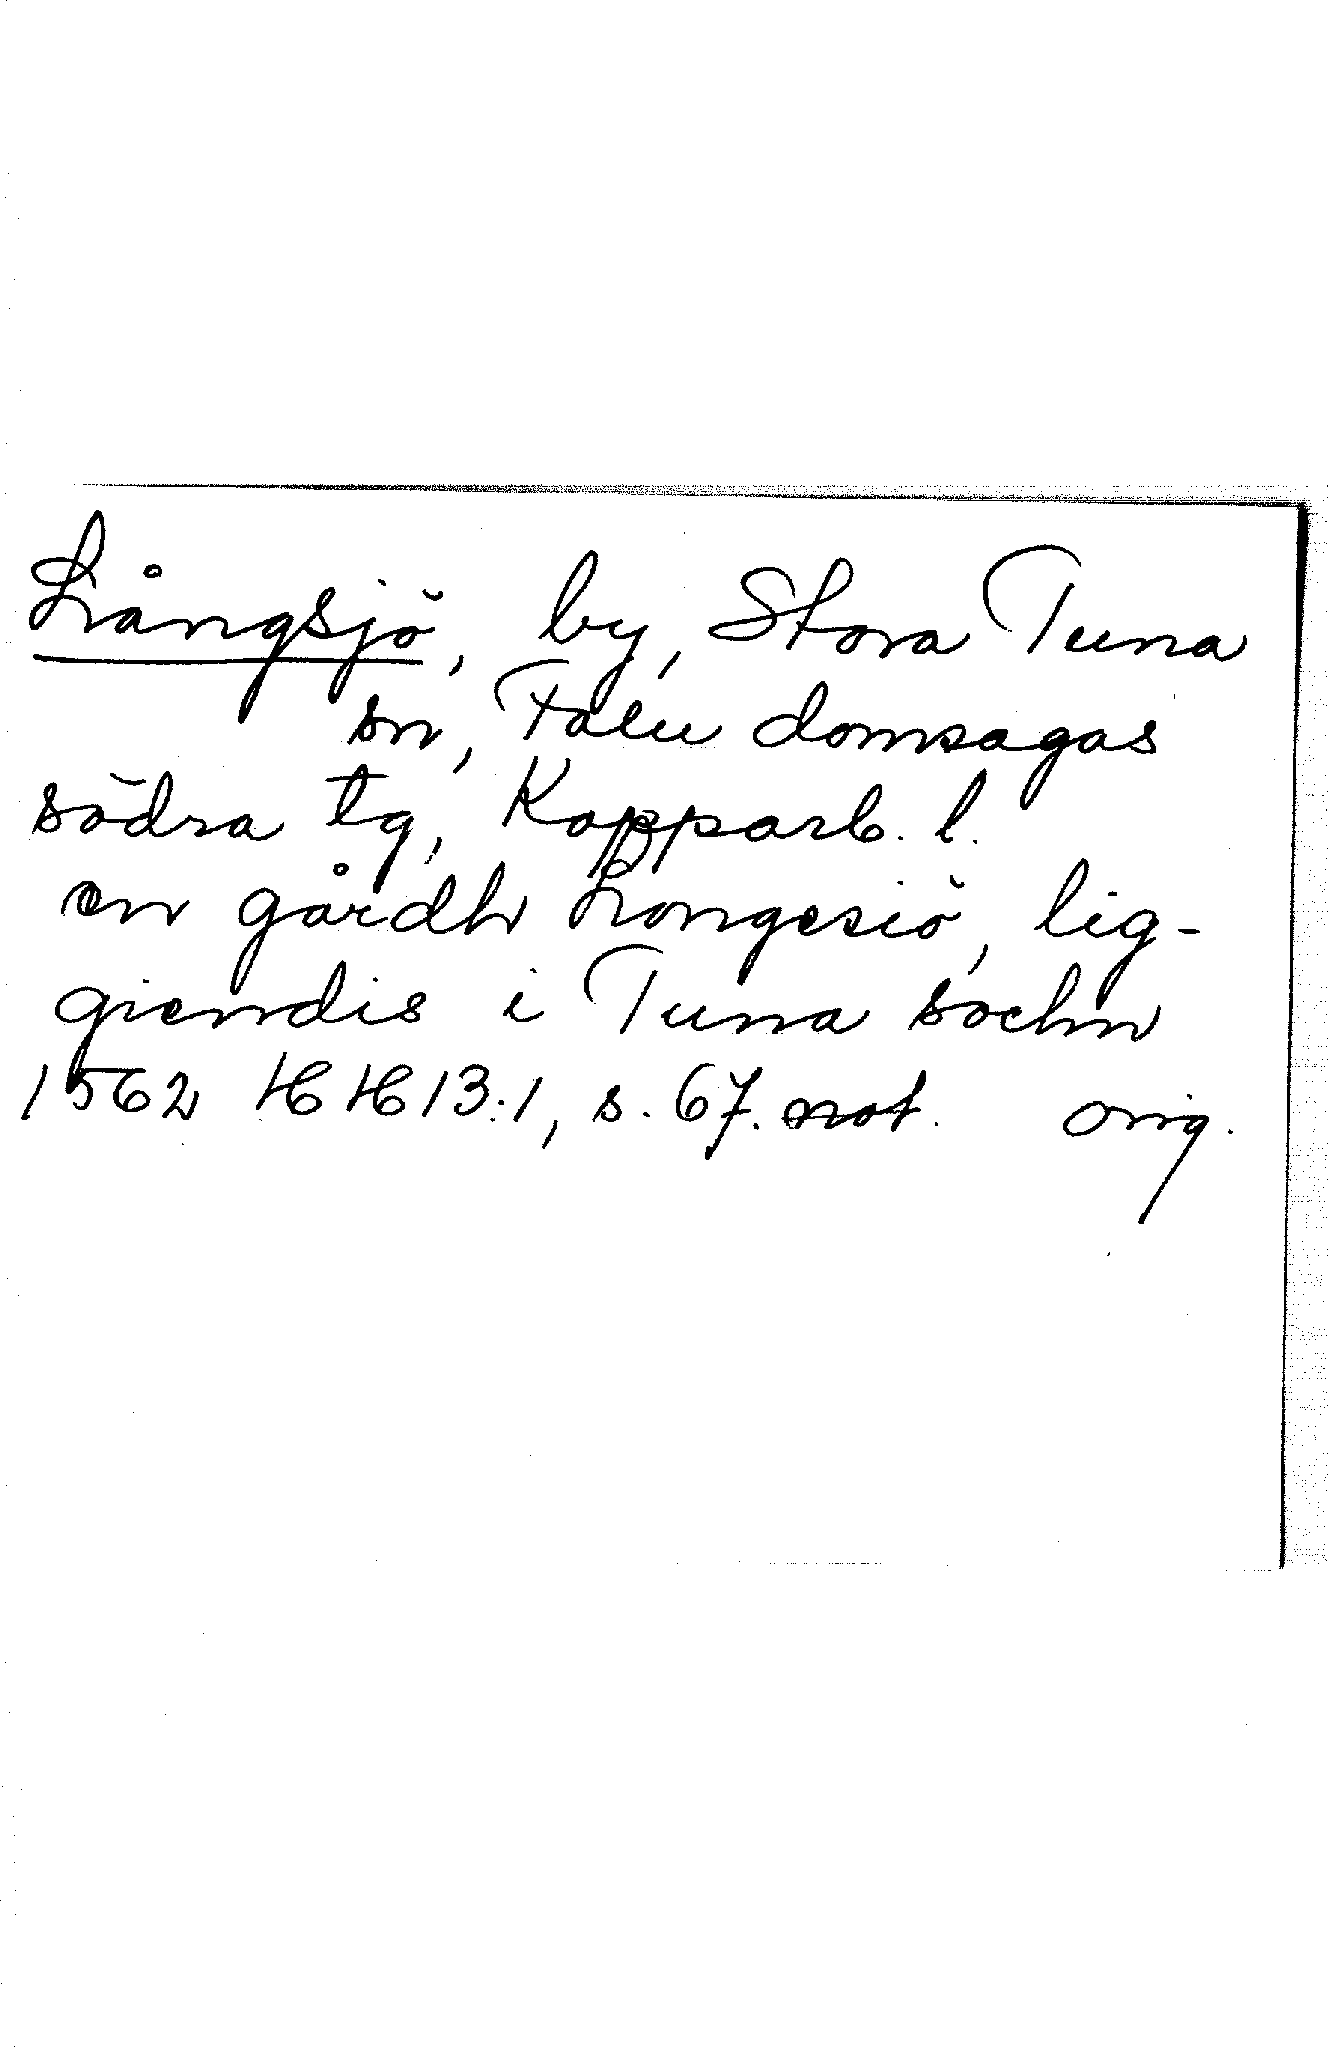 Långsjö, by, Stora Tuna
sn, Falu domsagas
södra tg, Kopparb. l.
en gårdh Longesiö, lig-
giendis i Tuna sochn
1562 HH 13:1, s. 67. not. orig.